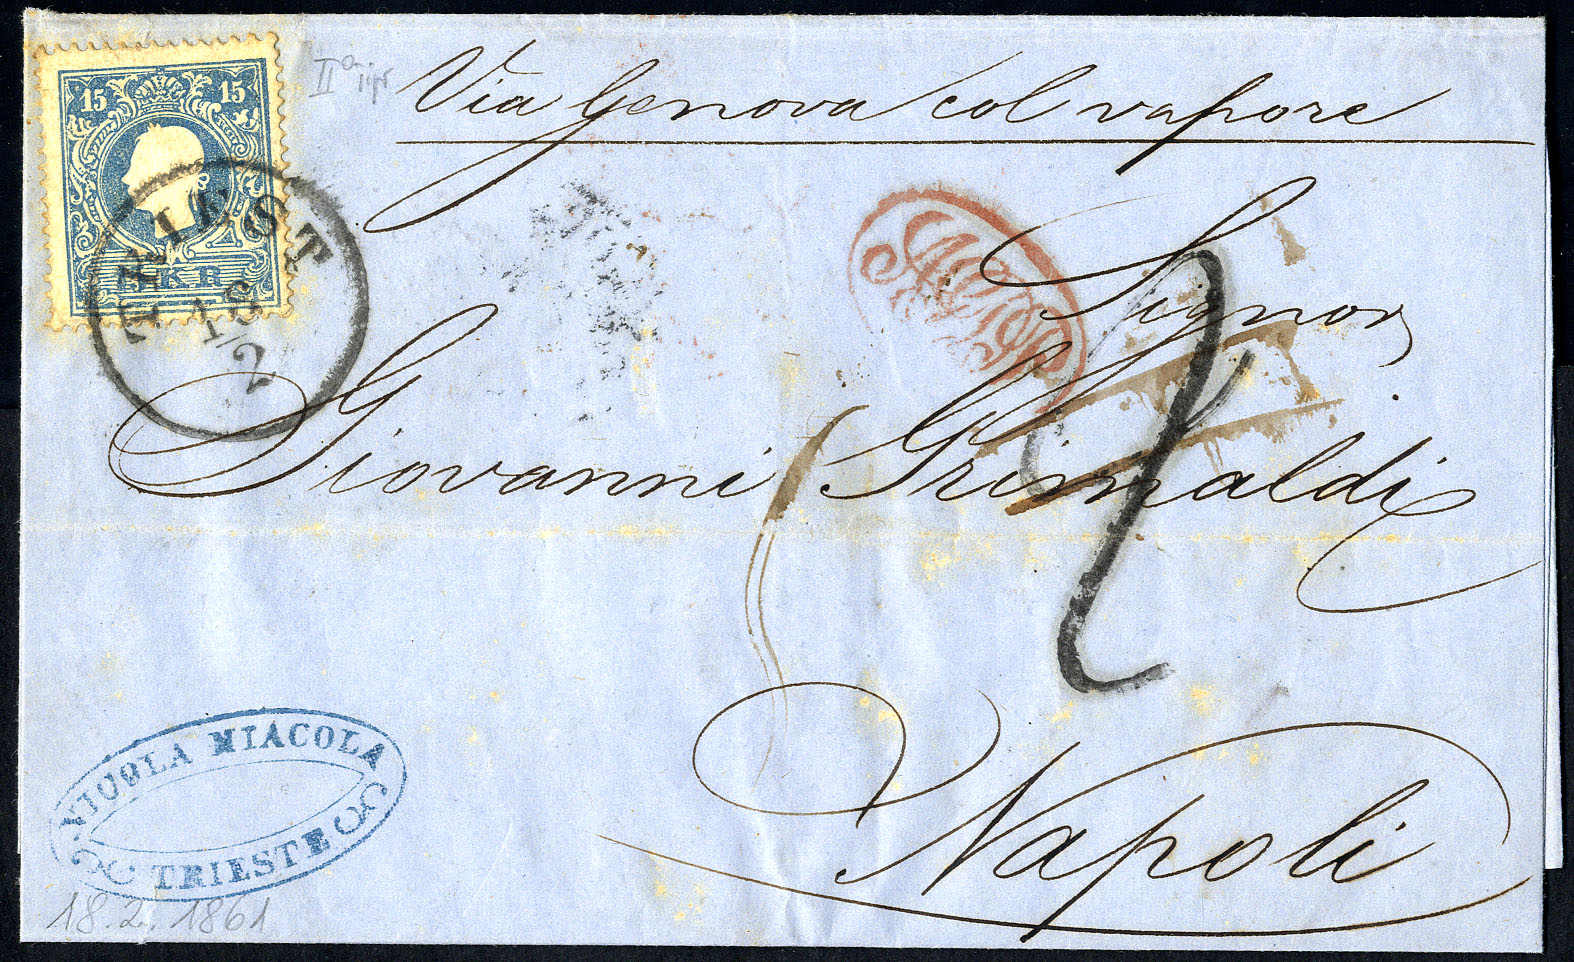 15 15
KR
TRIEST
18
2
IIa
Via Genova col vapore
Signor
Giovanni Grimaldi
Napoli
2
NICOLA MIACOLA
TRIESTE
18.2.1861